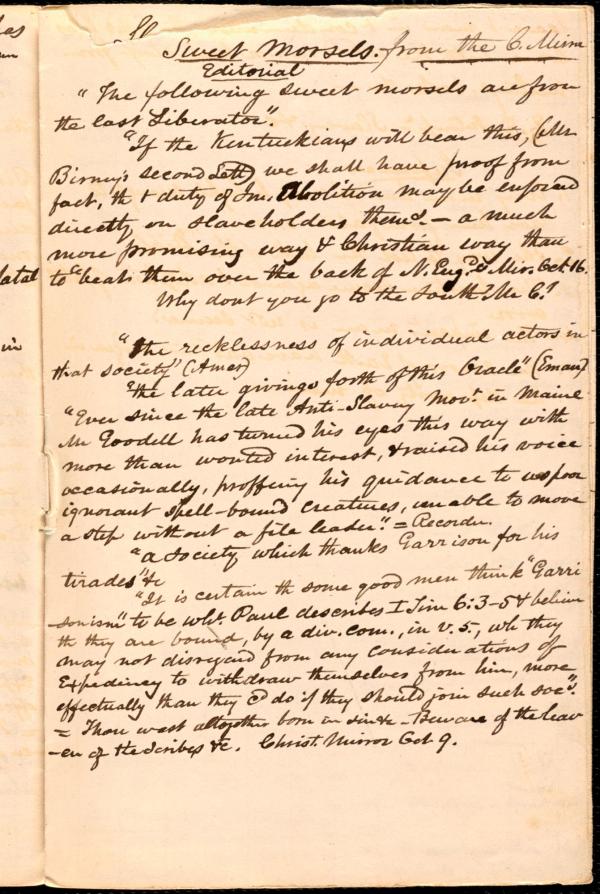 80
Sweet Morsels. from the C. Mirror
Editorial
"The following sweet morsels are from
the last Liberator".
"If the Kentuckians will bear this, (Mr
Birney's second Lett) we shall have proof from
fact, th t duty of Im. Abolition may be enforced
directly on slaveholders thems. — a much
more promising way & Christian way than
to beat them over the back of N. Engd". Mir. Oct. 16.
Why dont you go to the South? Mr C.!
"the recklessness of individual actors in
that society" (Amer)
"the later givings forth of this Oracle" (Eman)
"Ever since the late Anti-Slavery Movt. in Maine
Mr Goodell has turned his eyes this way with
more than wonted interest, & raised his voice
occasionally, proffering his guidance to us poor
ignorant spell-bound creatures, unable to move
a step without a file leader". = Recorder.
"a society which thanks Garrison for his
tirades" &c
"It is certain th some good men think "Garri
-sonism" to be wht. Paul describes I Tim 6:3-5 & believe
th they are bound, by a div. com., in v. 5., wh they
may not disregard from any considerations of
Expediency to withdraw themselves from him, more
effectually than they cd do if they should join such soc".
= Thou wast altogether born in sin &c — Beware of the leav
-en of the Scribes &c. Christ. Mirror Oct 9.
fatal
in